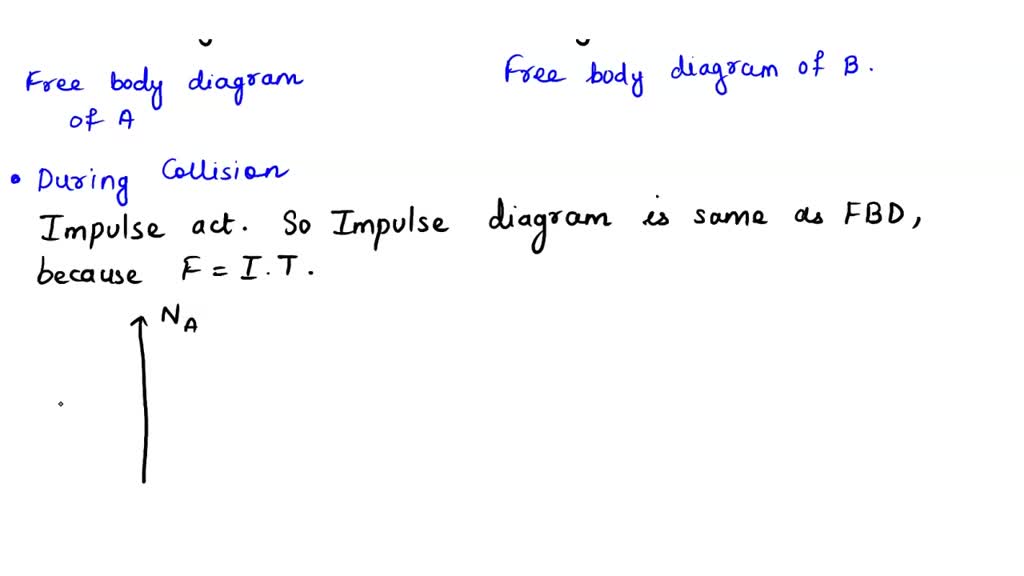 Free body diagram
of A
Free body diagram of B.
• During Collision
Impulse act. So Impulse diagram is same as FBD,
because F = I.T.
N_A